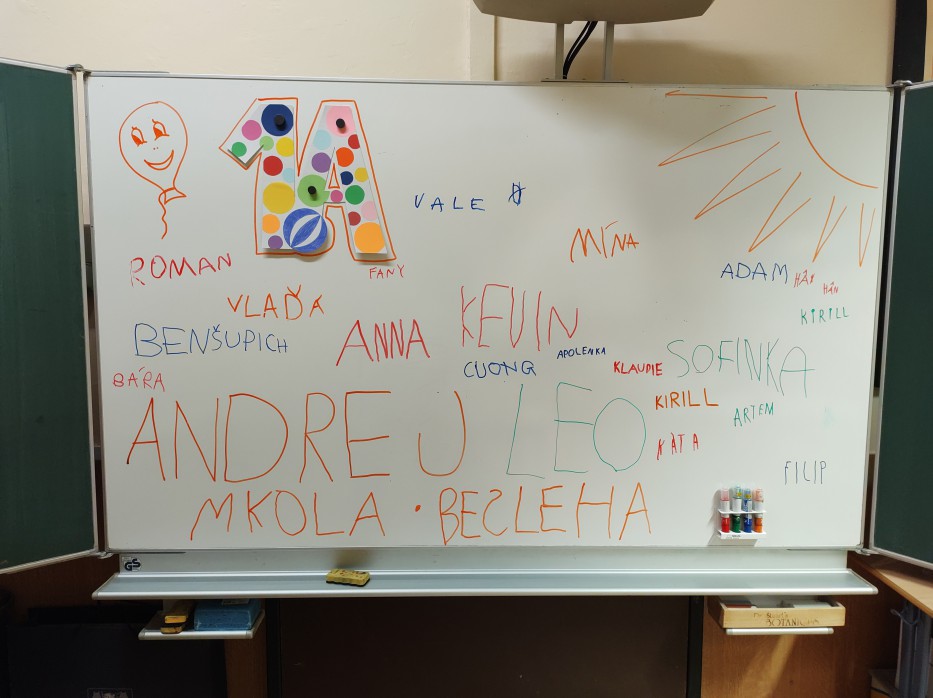 1A
VALE
MÍNA
ROMAN
FANY
ADAM
KIRILL
VLAĎA
KEVIN
BENŠUPICH
ANNA
CUONG
APOLENKA
KLAUDIE
SOFINKA
BÁRA
ANDREJ
LEO
KIRILL
ARTEM
KÁTA
FILIP
MKOLA · BEZLEHA
GS
BOTANICKÁ